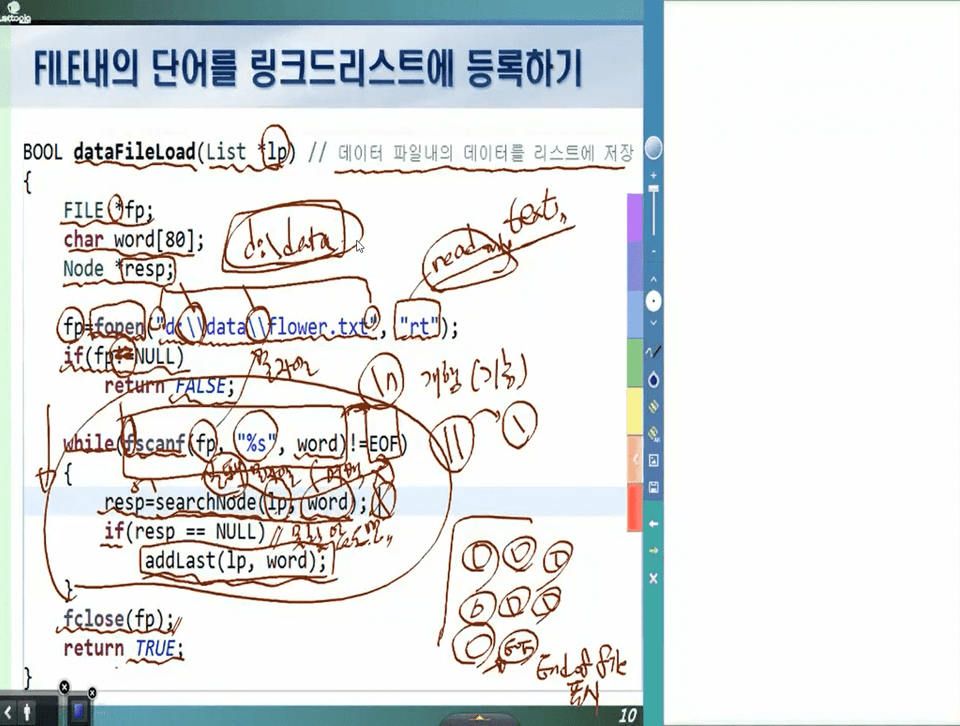 FILE내의 단어를 링크드리스트에 등록하기
BOOL dataFileLoad(List *lp) // 데이터 파일내의 데이터를 리스트에 저장
{
FILE *fp;
char word[80];
Node *resp;
d:\data
read only
text
fp=fopen("d:\\data\\flower.txt", "rt");
if(fp==NULL)
return FALSE;
\n 개행 (기능)
while(fscanf(fp, "%s", word)!=EOF)
\\ \
{
resp=searchNode(lp, word);
if(resp == NULL)
addLast(lp, word);
}
fclose(fp);
return TRUE;
}
EOF
End of file
표시
10